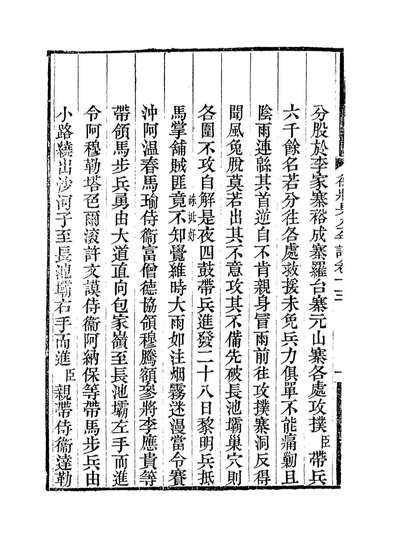 分股於李家寨裕成寨羅台寨元山寨各處攻撲臣帶兵
六千餘名若分往各處救援未免兵力俱單不能痛勦且
陰雨連緜其首逆自不肯親身冒雨前往攻撲寨洞反得
聞風兔脫莫若出其不意攻其不備先破長池壩巢穴則
各圍不攻自解是夜四鼓帶兵進發二十八日黎明兵抵
硃批好
馬掌舖賊匪竟不知覺維時大雨如注烟霧迷漫當令賽
沖阿温春馬瑜侍衞富僧德協領程騰額參將李應貴等
帶領馬步兵勇由大道直向包家嶺至長池壩左手而進
令阿穆勒塔爸爾滾許文謨侍衞阿納保等帶馬步兵由
小路繞出沙河子至長池壩右手而進臣親帶侍衞達勒